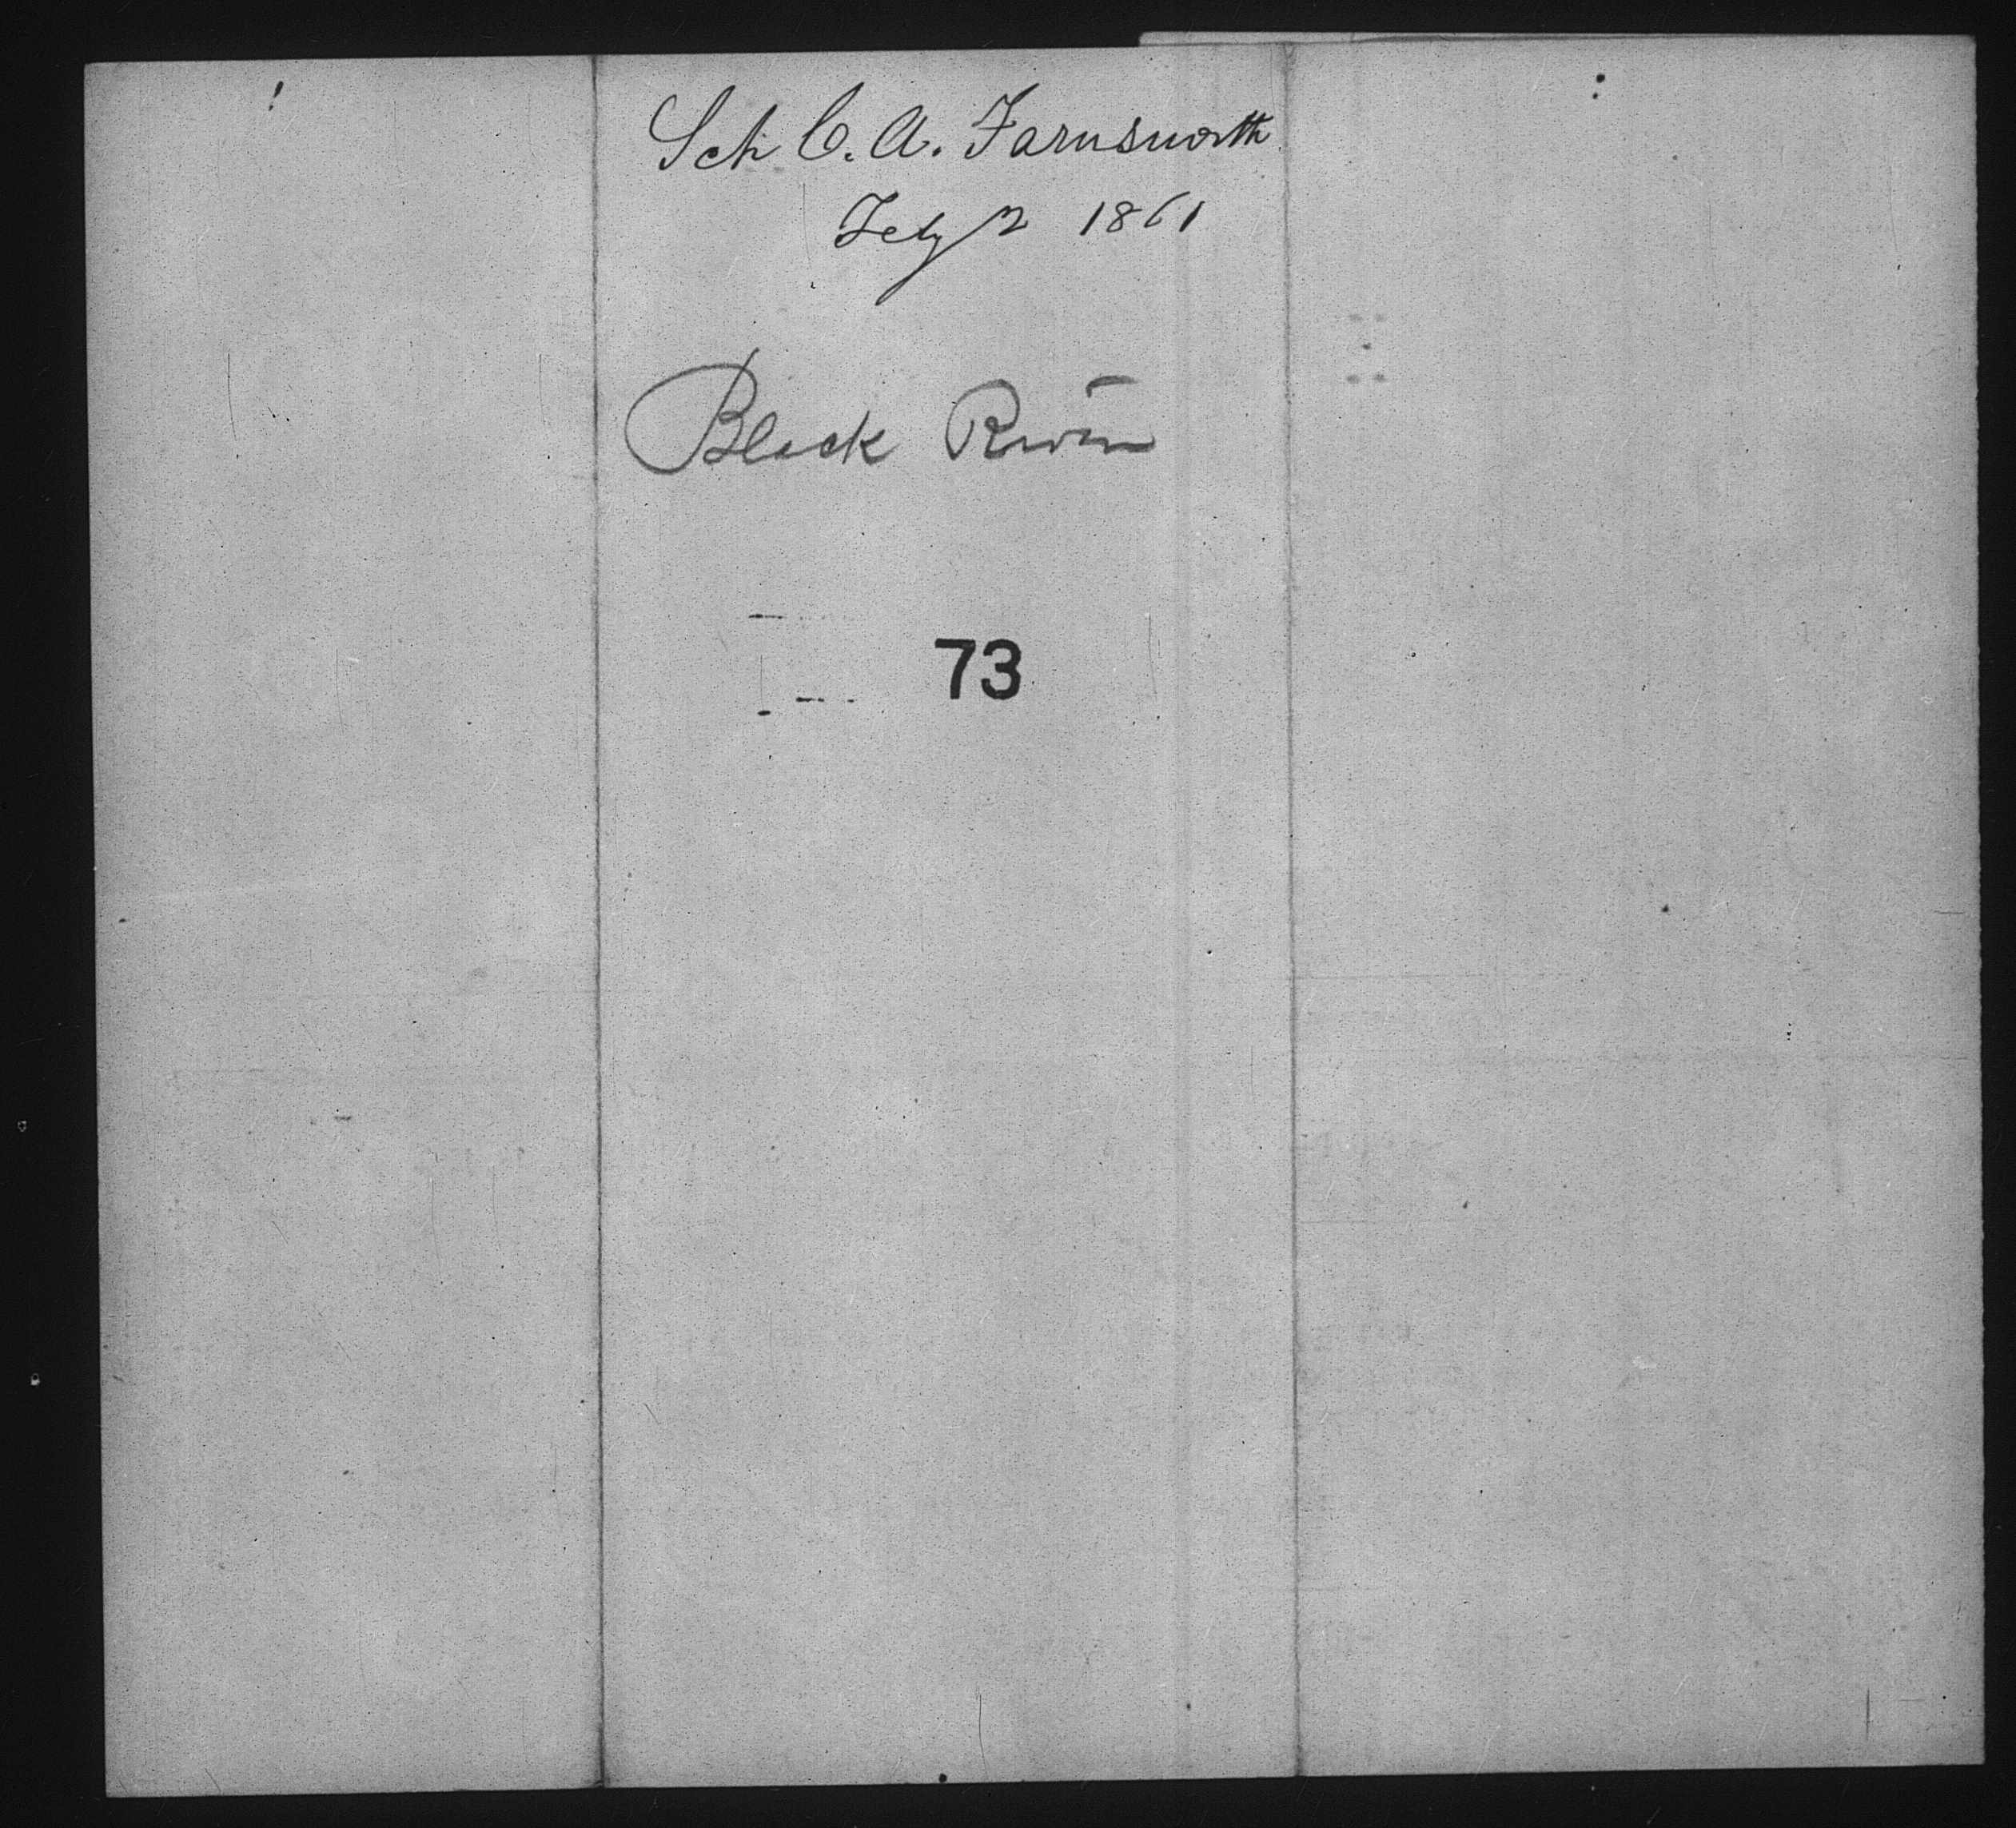 Sch C. A. Farnsworth
Feby 2 1861
Black River
73